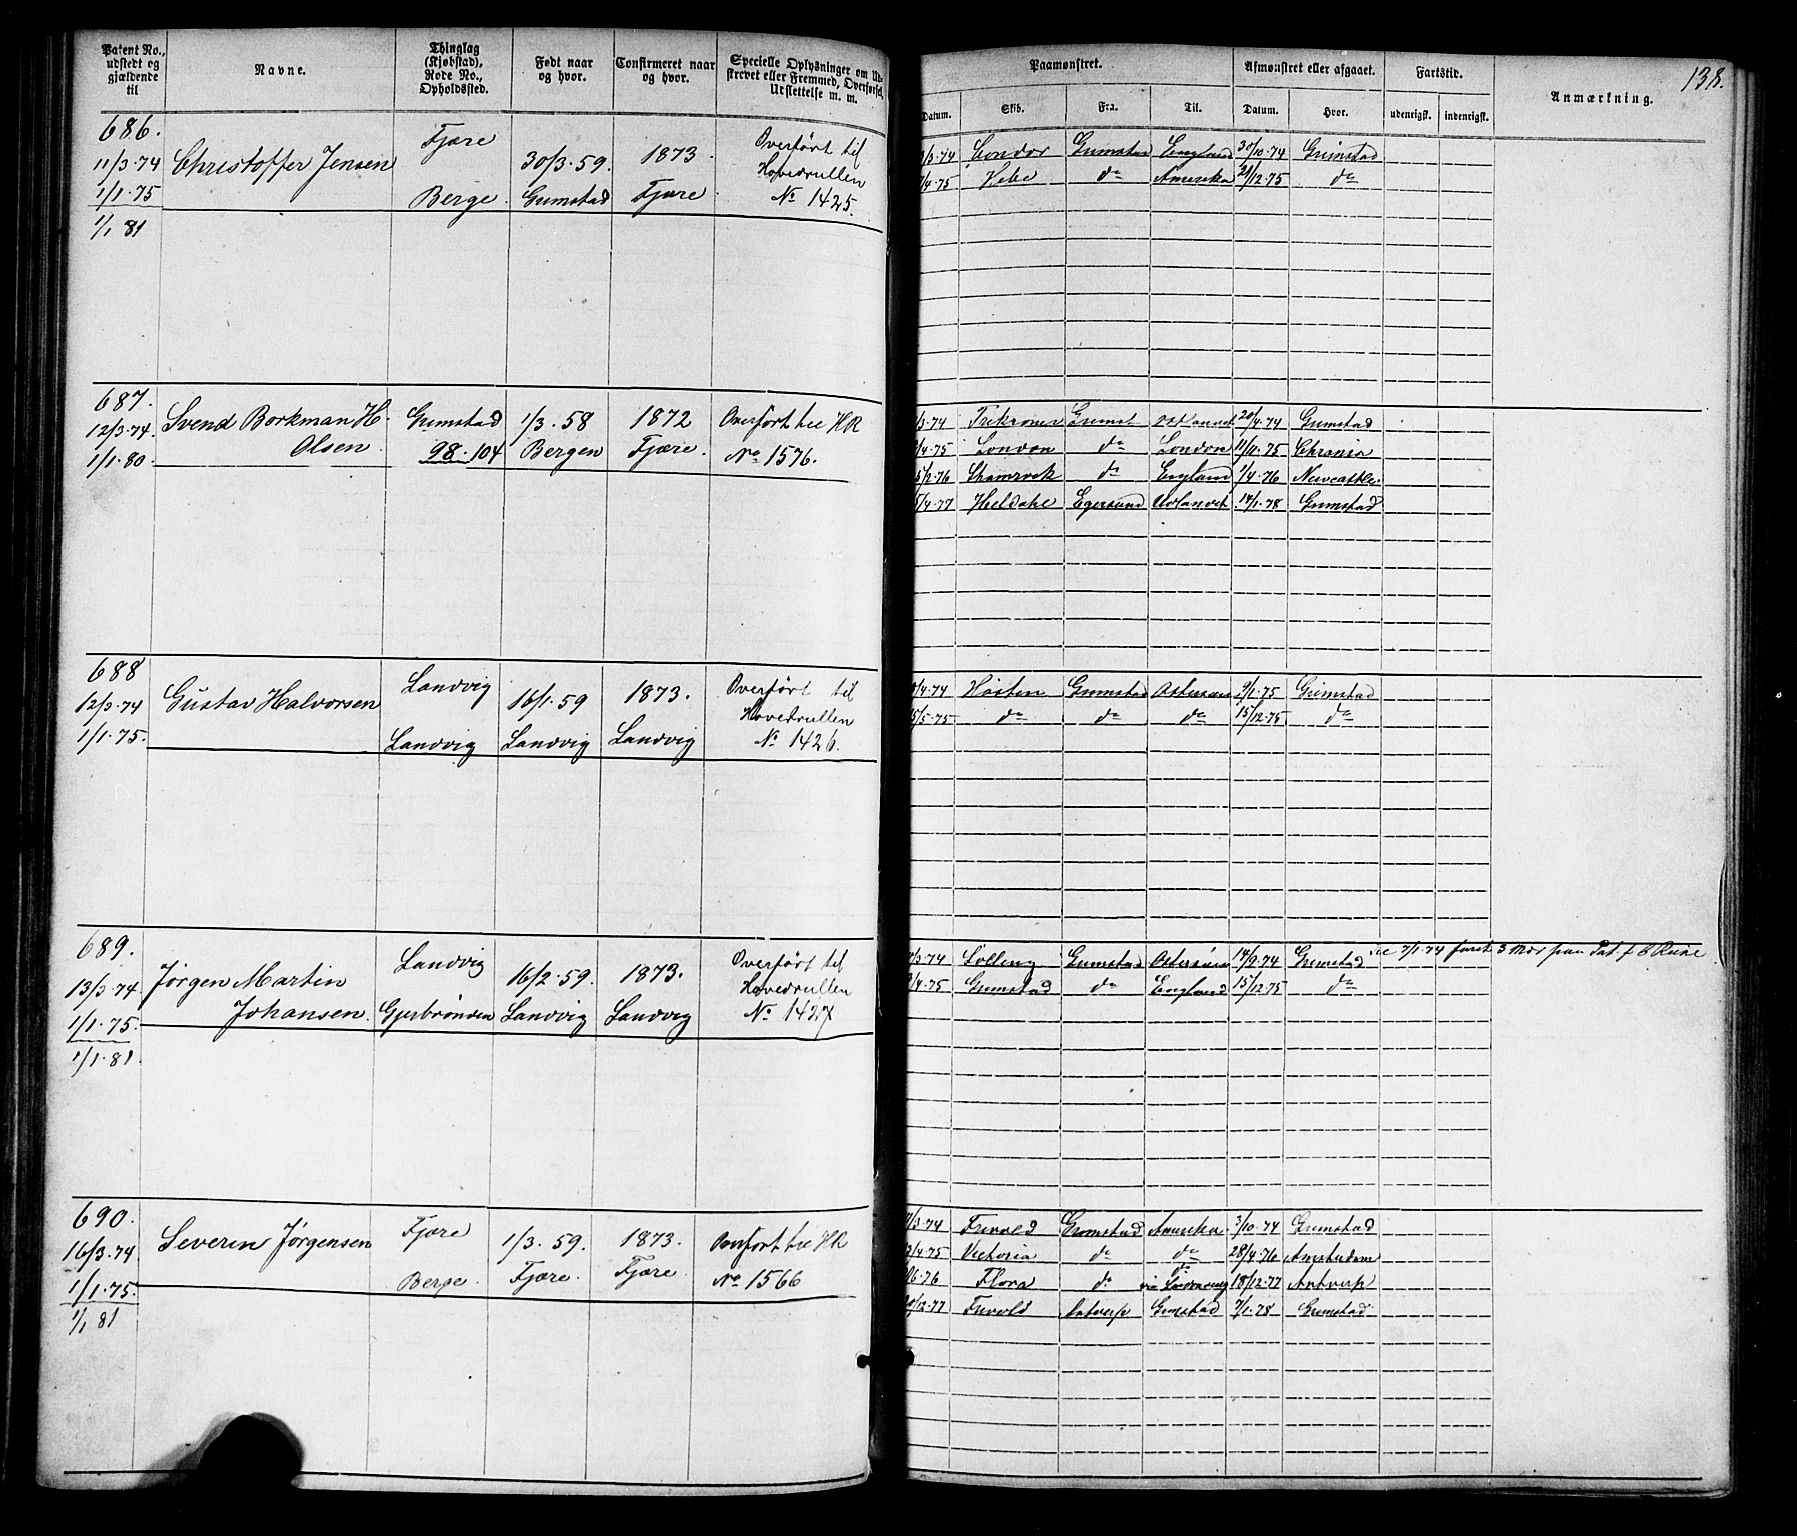 138.
Patent No., udstedt og gjældende til
Navne.
Thinglag (Kjøbstad), Rode No., Opholdssted.
Født naar og hvor.
Confirmeret naar og hvor.
Specielle Oplysninger om Udskrevet eller Fremmed, Overførsel, Udslettelse m. m.
Paamønstret.
Afmønstret eller afgaaet.
Fartstid.
Anmærkning.
Datum. Skib. Fra. Til. Datum. Hvor. udenrigsk. indenrigsk.
686. Fjære Overført til
11/3-74 Christoffer Jensen 30/3-59. 1873. Hovedrullen
1/1-75 Berge Grimstad Fjære No 1425.
1/1 81
3-74 Condor Grimstad England 30/10-74 Grimstad
4-75 Hebe do Amerika 21/12-75 do
687. Svend Borkman H. Grimstad 1/3.58 1872 Overført til HR
12/3-74 Olsen 98.104 Bergen Fjære. No 1576.
1/1-80
3-74 Grimst 20/4-74 Grimstad
4-75 London do London 11/11-75 Chrania
2-76 Shamrock do England 1/4-76 Newcastle
4-77 Heldahl Egersund Udlandet 14/1-78 Grimstad
688 Landvig Overført til
12/3-74 Gustav Halvorsen 16/1-59 1873. Hovedrullen
1/1-75. Landvig Landvig Landvig No 1426.
4-74 Høsten Grimstad Østersøen 9/1-75 Grimstad
5-75 do do do 15/12-75 do
689. Landvig Overført til
13/3-74 Jørgen Martin 16/2-59. 1873. Hovedrullen
1/1-75. Johansen. Gjerbrønden Landvig Landvig No 1427
1/1-81.
3-74 Grimstad Østersøen 14/9-74 Grimstad 7/1-74 3
4-75 Grimstad do England 15/12-75 do
690. Fjære
16/3-74 Severin Jørgensen 1/3-59. 1873. Overført til HR
1/1-75. Berge. Fjære. Fjære. No 1566
1/1 81
3-74 Frivold Grimstad Amerika 3/10-74 Grimstad
4-75 Victoria do do 28/4-76 Amsterdam
6-76 Flora do do via 18/12-77 Antverp
12-77 Frivold Antverp Grimstad 7/1-78 Grimstad